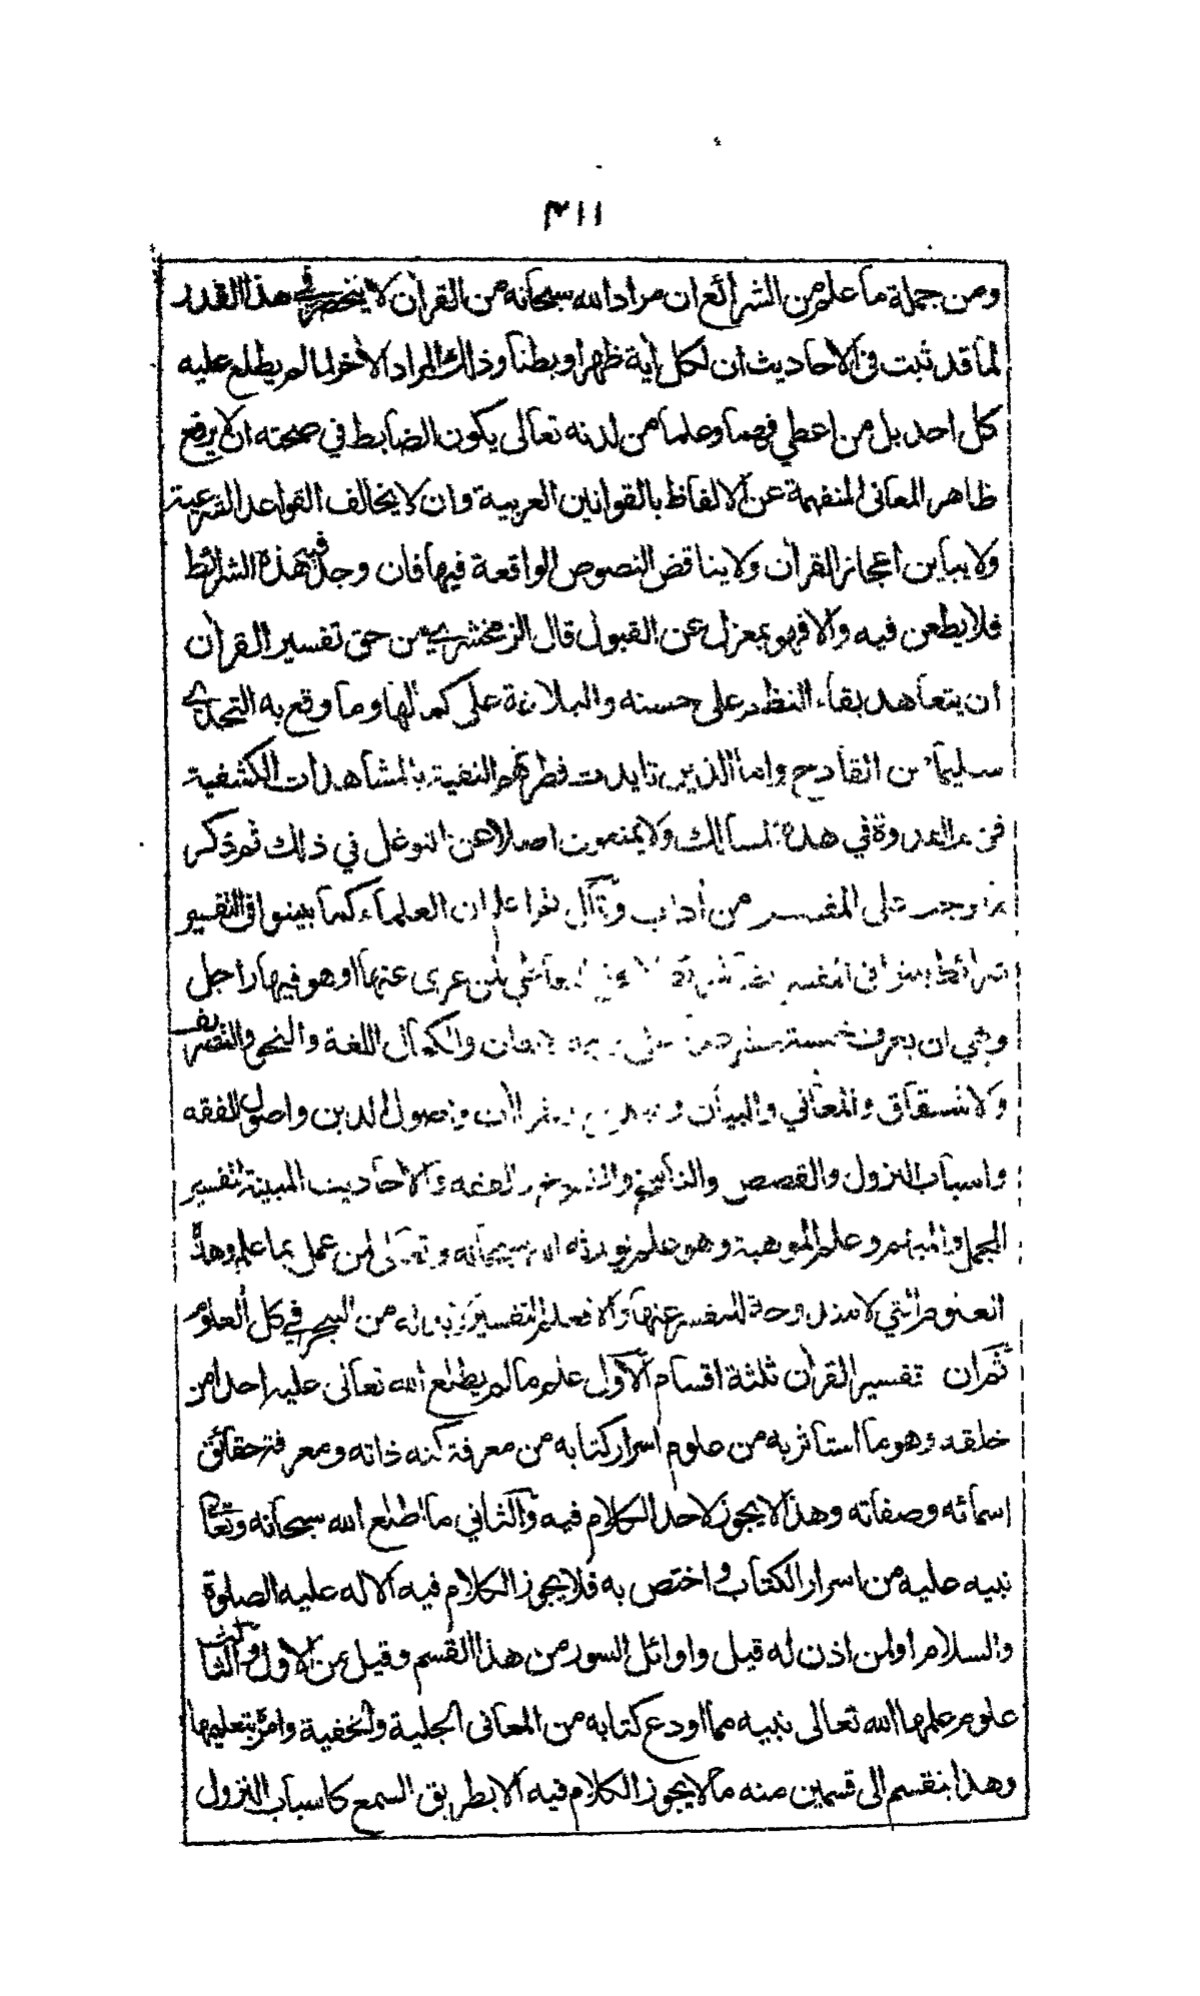 ٣١١
ومن جملة ما علم من الشرائع ان مراد الله سبحانه من القرآن لا ينحصر في هذا القدر
لما قد ثبت في الاحاديث ان لكل آية ظهرا وبطنا وذلك المراد الآخر لما لم يطلع عليه
كل احد بل من اعطي فهما وعلما من لدنه تعالى يكون الضابط في صحته ان لا يرفع
ظاهر المعاني المنفهمة عن الالفاظ بالقوانين العربية وان لا يخالف القواعد الشرعية
ولا يباين اعجاز القرآن ولا يناقض النصوص الواقعة فيها فان وجد فيه هذه الشرائط
فلا يطعن فيه والا فهو بمعزل عن القبول قال الزمخشري من حق تفسير القرآن
ان يتعاهد بقاء النظم على حسنه والبلاغة على كمالها وما وقع به التحدي
سليما من القادح واما الذين تايدت فطرتهم النقية بالمشاهدات الكشفية
فهم القدوة في هذه المسالك ولا يمنعون اصلا عن التوغل في ذلك ثم ذكر
ما وجب على المفسر من آداب وقال اعلم ان العلماء كما بينوا في التفسير
شرائط بينوا في المفسر عرى عنها او هو فيها راجل
وهي ان يعرف خمسة عشر والكمال اللغة والنحو والتصريف
والاشتقاق والمعاني والبيان و واصول الدين واصول الفقه
واسباب النزول والقصص والناسخ والمنسوخ والفقه والاحاديث المبينة لتفسير
المجمل والمبهم وعلم الموهبة وهو علم يورثه الله سبحانه وتعالى لمن عمل بما علم وهذه
العلوم التي لا مندوحة للمفسر عنها والا فعلم التفسير لا بد له من التبحر في كل العلوم
ثم ان تفسير القرآن ثلثة اقسام الاول علم ما لم يطلع الله تعالى عليه احدا من
خلقه وهو ما استاثر به من علوم اسرار كتابه من معرفة كنه ذاته ومعرفة حقائق
اسمائه وصفاته وهذا لا يجوز لاحد الكلام فيه والثاني ما اطلع الله سبحانه وتعالى
نبيه عليه من اسرار الكتاب واختص به فلا يجوز الكلام فيه الا له عليه الصلوة
والسلام او لمن اذن له قيل واوائل السور من هذا القسم وقيل من الاول والثالث
علوم علمها الله تعالى نبيه مما اودع كتابه من المعاني الجلية والخفية وامره بتعليمها
وهذا ينقسم الى قسمين منه ما لا يجوز الكلام فيه الا بطريق السمع كاسباب النزول